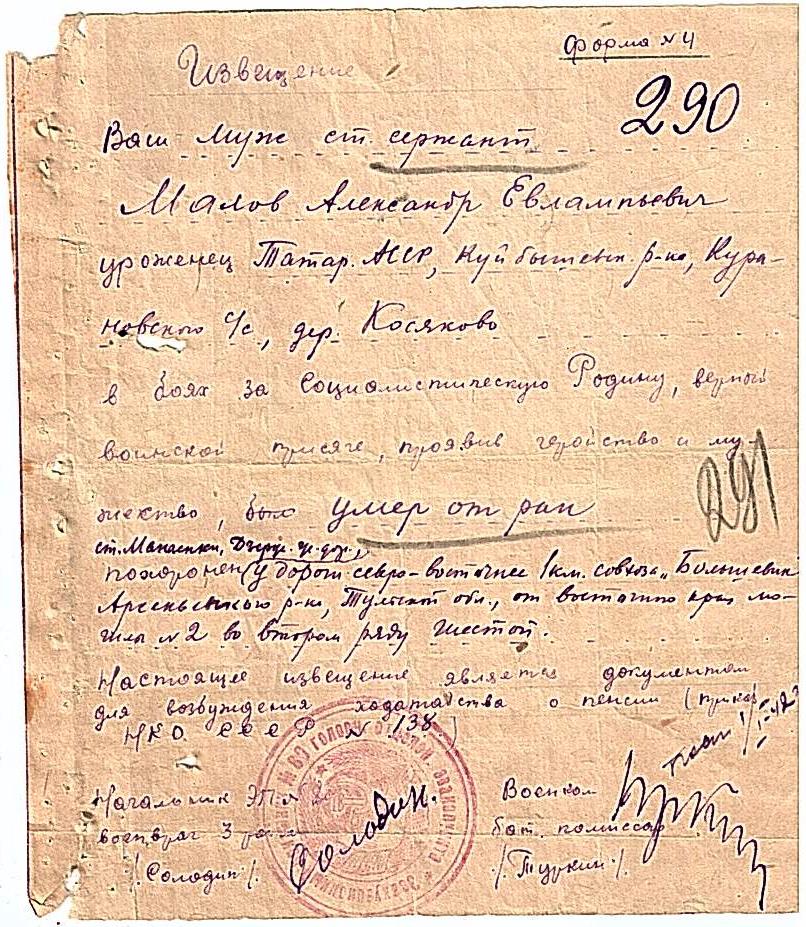 Форма № 4
Извещение
290
Ваш муж ст. сержант
Малов Александр Евлампьевич
уроженец Татар. АССР, Куйбышевск. р-на, Кура-
новского с/с, дер. Косяково
в боях за Социалистическую Родину, верный
воинской присяге, проявив геройство и му-
жество, был умер от ран
291
ст. Манаенки, Дзерж. ж. дор.,
похоронен (у дороги северо-восточнее 1 км. совхоза „Большевик
Арсеньевского р-на, Тульской обл., от восточного края мо-
гила № 2 во втором ряду шестой.
Настоящее извещение является документом
для возбуждения ходатайства о пенсии (приказ
НКО СССР № 138)
Начальник Военком
военврач 3 ранга бат. комиссар
/Солодин/. Солодин. /Туркин/.